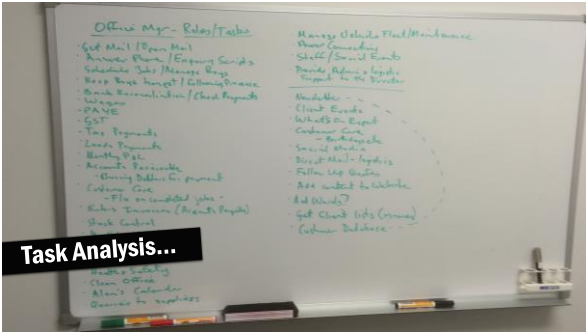 Office Mgr - Roles/Tasks
Get Mail / Open Mail
Answer Phone / Enquiry Scripts
Schedule Jobs / Manage Boys
Keep Bank
Bank Reconciliation / Check Payments
Wages
PAYE
GST
Tax Payments
Loans Payments
Monthly P&L
Accounts Receivable
- Chasing Debtors for payment
Customer Care
- F/u on completed jobs -
Enters Invoices (Accounts Payable)
Stock Control
Task Analysis...
Health & Safety
Clean Office
Alan's Calendar
Queries to suppliers
Manage Vehicle Fleet/Maintenance
Power Connections
Staff / Social Events
Provide Admin & logistic
Support to the Director
Newsletter
Client Events
What's On Report
Customer Care
Social Media
Direct Mail - logistics
Follow Up Quotes
Add content to Website
Ad Words?
Get Client lists
Customer Database